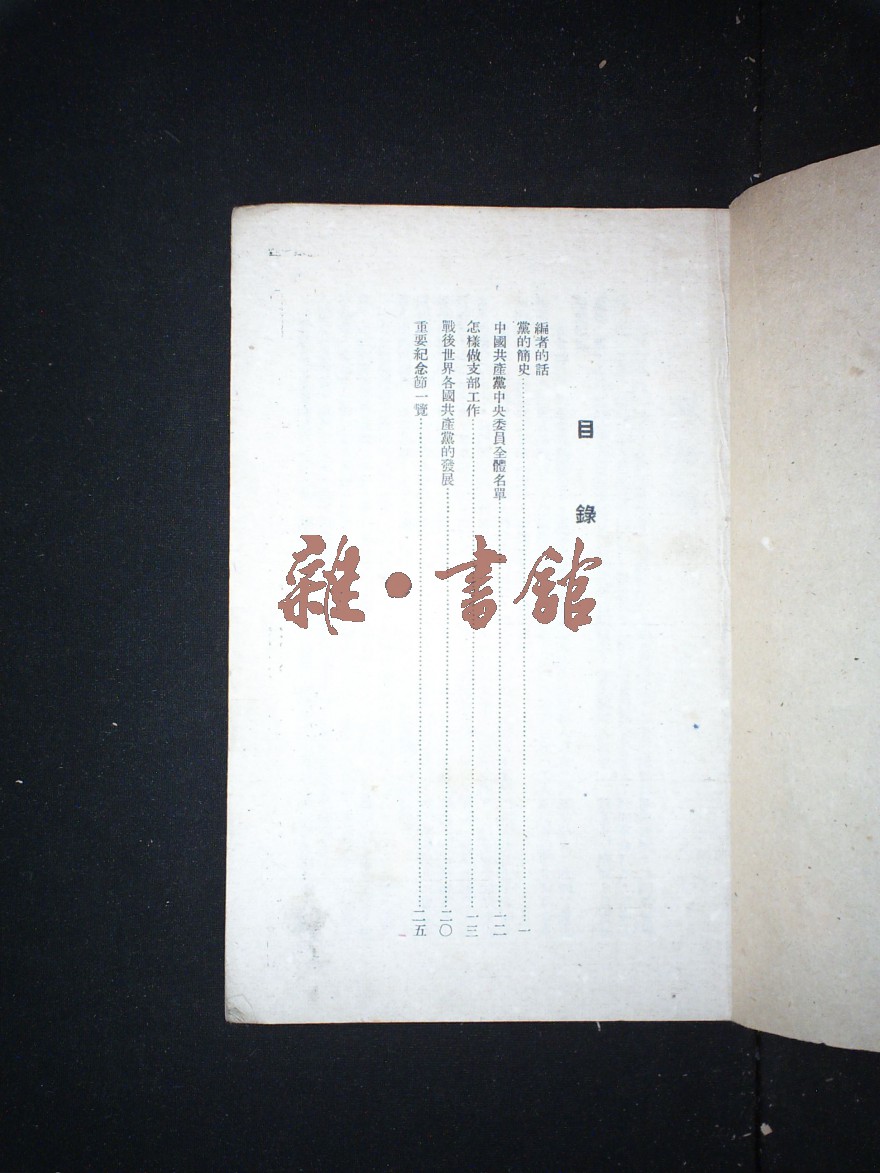 目錄
編者的話
黨的簡史……一
中國共產黨中央委員全體名單……一二
怎樣做支部工作……一三
戰後世界各國共產黨的發展……二〇
重要紀念節一覽……二五
雜·書館